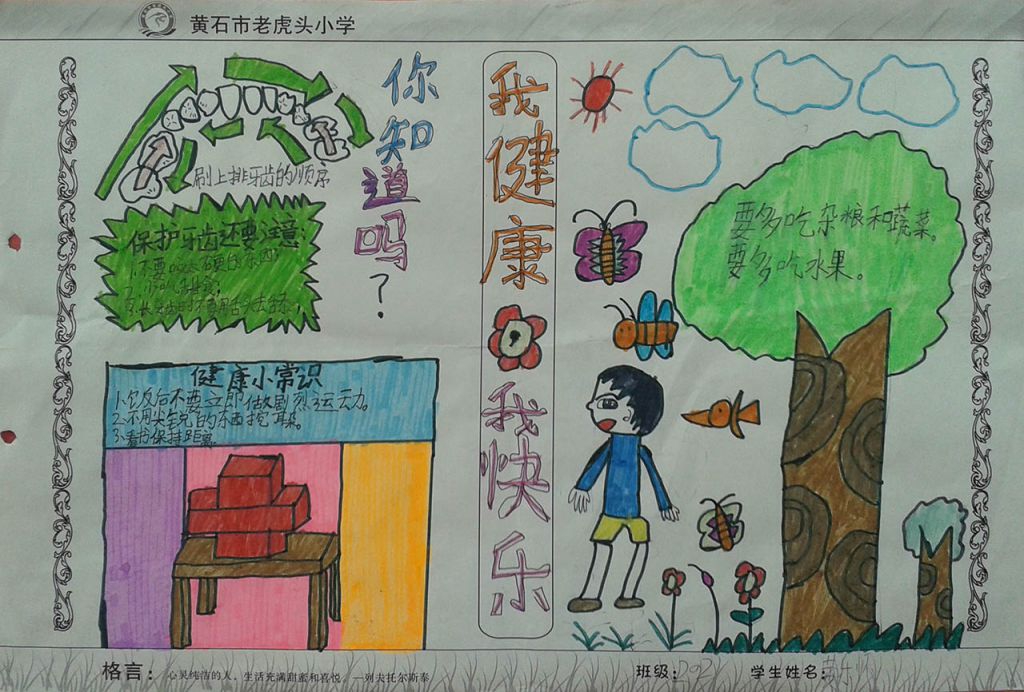 黄石市老虎头小学
你知道吗?
刷上排牙齿的顺序
保护牙齿还要注意:
健康小常识
1.饮反后不要立即做剧烈运动。
2.不用尖锐的东西挖耳朵。
3.看书保持距离
我健康
我快乐
要多吃杂粮和蔬菜。
要多吃水果。
格言:心灵纯洁的人,生活充满甜蜜和喜悦。—列夫托尔斯泰
班级:
学生姓名: